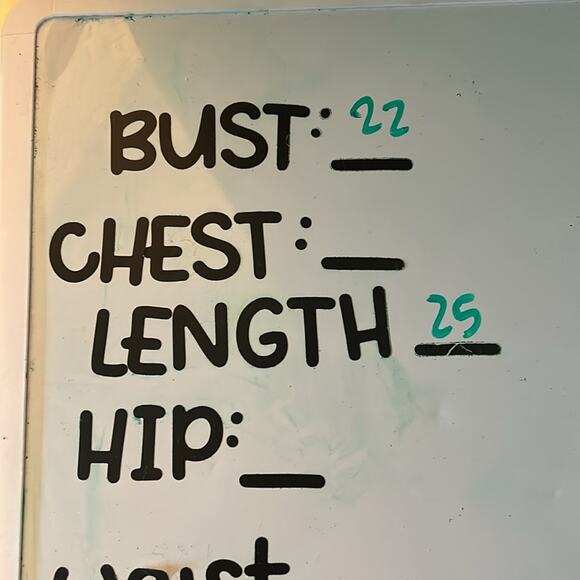 BUST: 22
CHEST: _
LENGTH 25
HIP: _
waist